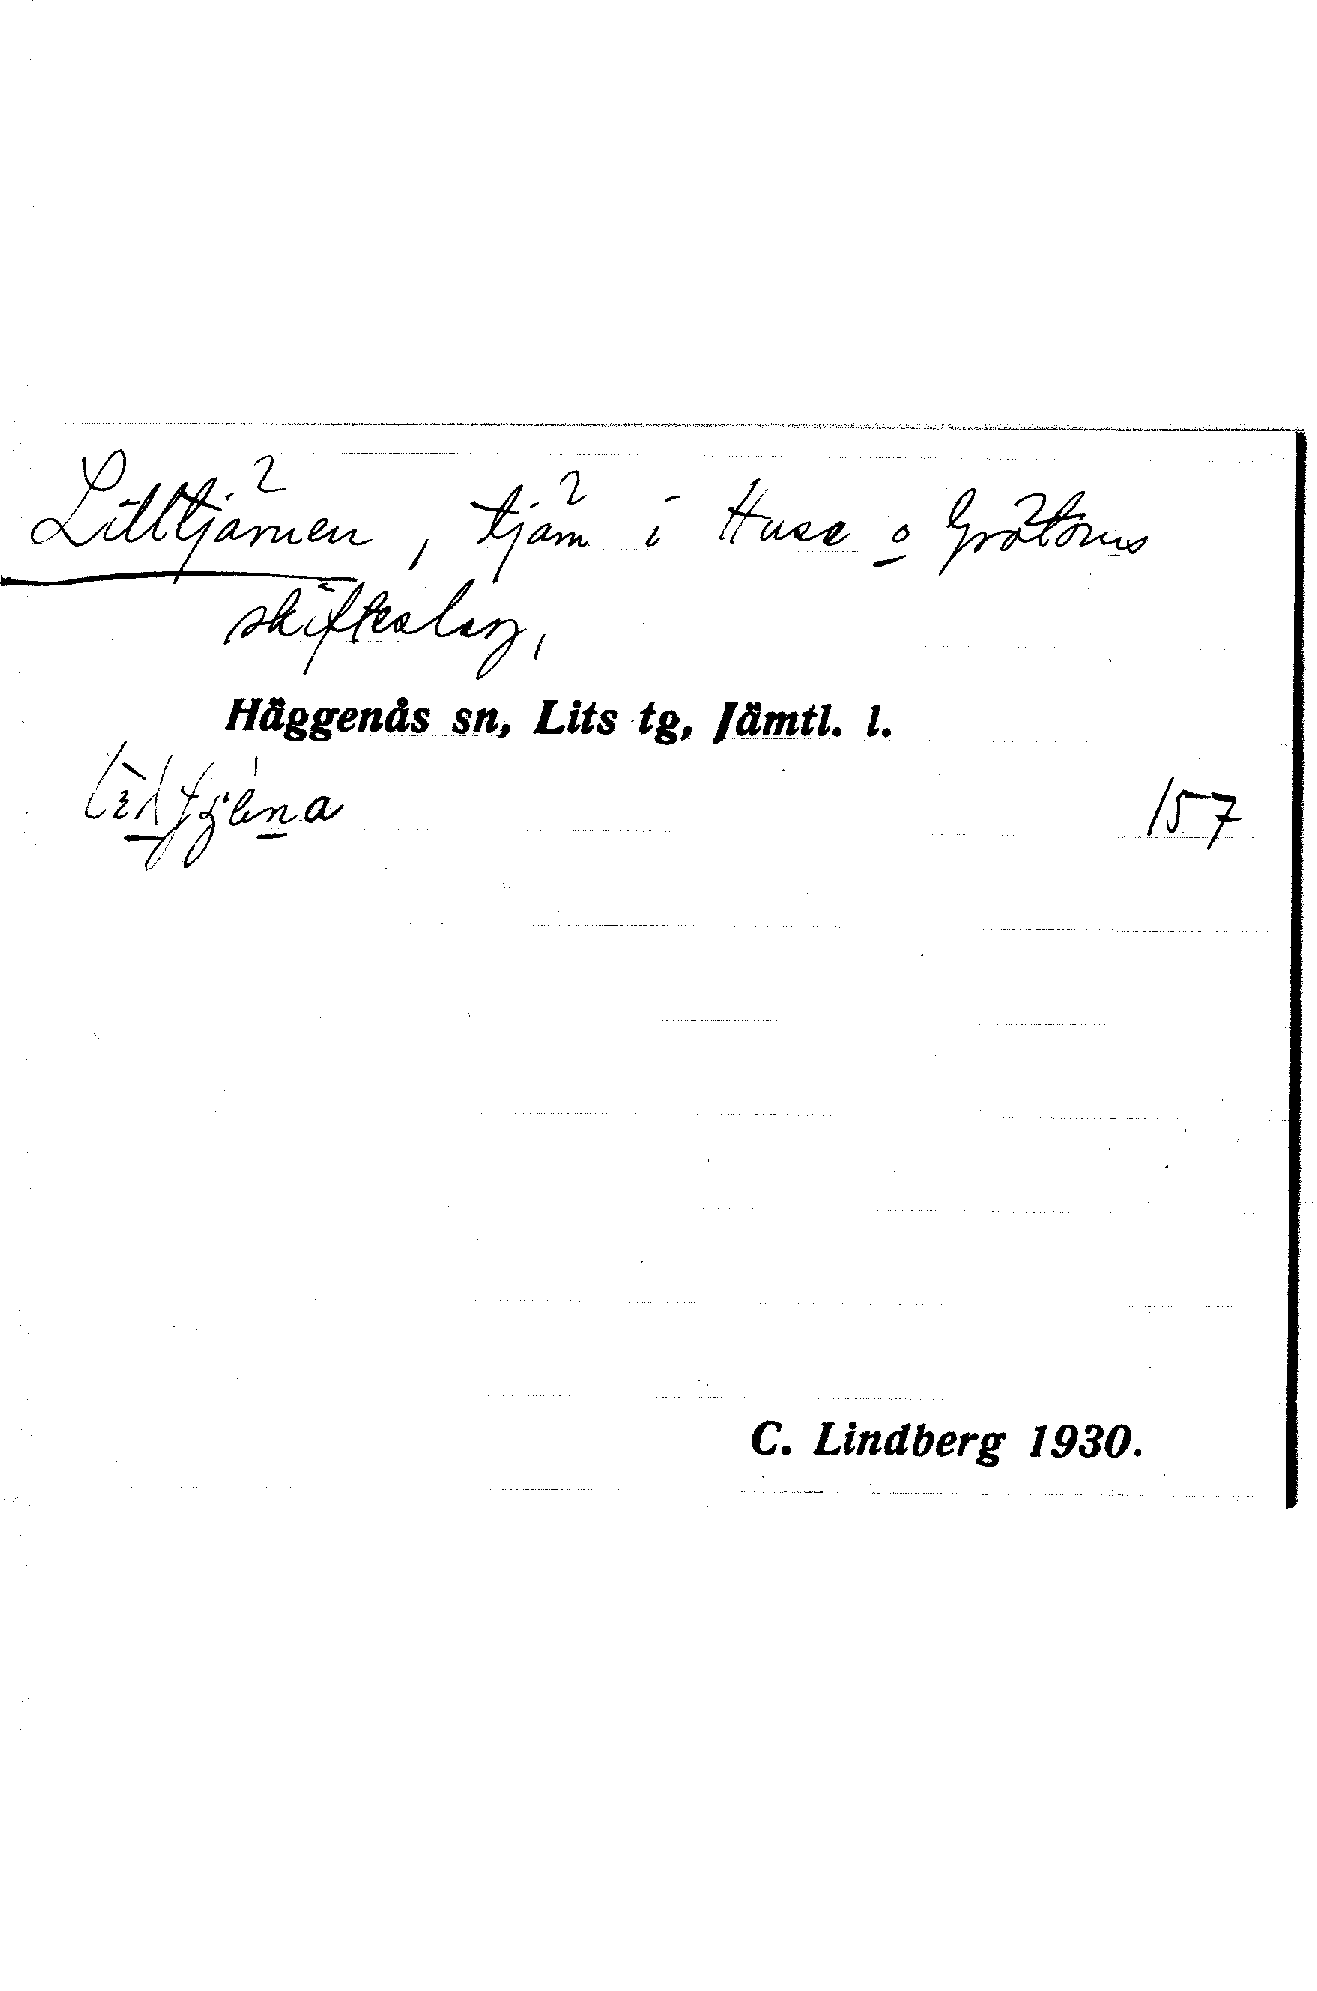 Lilltjärnen, tjärn i Huse o Grötoms
skifteslag,
Häggenås sn, Lits tg, Jämtl. l.
157
C. Lindberg 1930.